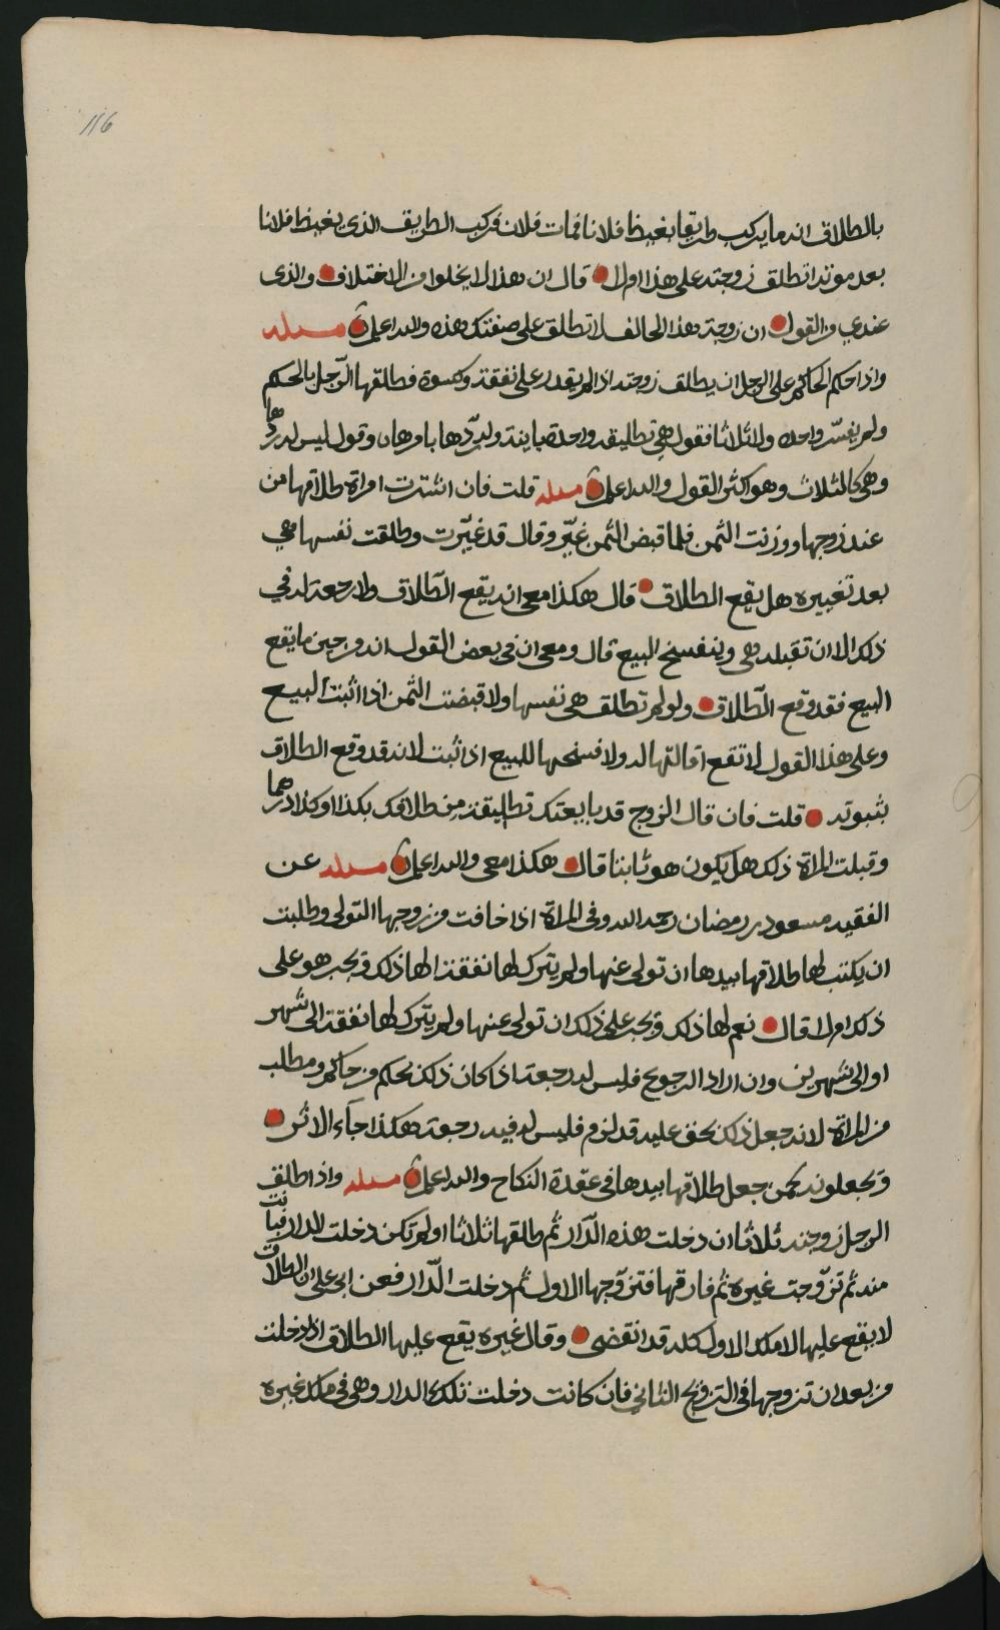 116
بالطلاق انه ما يركب طريقا يغيظ فلانا فمات فلان فركب الطريق الذي يغيظ فلانا
بعد موته اتطلق زوجته على هذا ام لا قال ان هذا لا يخلوا من الاختلاف والذي
عندي من القول ان زوجة هذا الحالف لا تطلق على صفتك هذه والله اعلم مسله
واذا حكم الحاكم على الرجل ان يطلق زوجته اذا لم يقدر على نفقة وكسوة فطلقها الرّجل بالحكم
ولم يفسّر واحدة ولا ثلاثا فقول هي تطليقة واحدة باينة وله ردّها بامرها وقول ليس له ردها
وهي كالثلاث وهو اكثر القول والله اعلم مسله قلت فان اشترت امراة طلاقها من
عند زوجها ووزنت الثمن فلما قبض الثمن غيّر وقال قد غيّرت وطلقت نفسها هي
بعد تغييره هل يقع الطلاق قال هكذا معي انه يقع الطّلاق ولا رجعة له في
ذلك الا ان تقيله هي وينفسخ البيع قال ومعي ان في بعض القول انه من حين ما يقع
البيع فقد وقع الطّلاق ولو لم تطلق هي نفسها ولا قبضت الثمن اذا اثبت البيع
وعلى هذا القول لا تقع اقالتها له ولا فسخها للبيع اذا ثبت لانه قد وقع الطلاق
بثبوته قلت فان قال الزوج قد بايعتك تطليقة من طلاقك بكذا وكذا درهما
وقبلت المراة ذلك هل يكون هو ثابتا قال هكذا معي والله اعلم مسله عن
الفقيه مسعود بن رمضان رحمه الله وفي المراة اذا خافت من زوجها التولي وطلبت
ان يكتب لها طلاقها بيدها ان تولى عنها ولم يترك لها نفقة الها ذلك ويجبر هو على
ذلك ام لا قال نعم لها ذلك ويجبر على ذلك ان تولى عنها ولم يترك لها نفقة الى شهر
او الى شهرين وان اراد الرجوع فليس له رجعة اذا كان ذلك بحكم من حاكم ومطلب
من المراة لانه جعل ذلك بحق عليه قد لزم فليس له فيه رجعة هكذا جآء الاثر
ويجعلونه كمن جعل طلاقها بيدها في عقدة النكاح والله اعلم مسله واذا طلق
الرجل زوجته ثلاثا ان دخلت هذه الدّار ثم طلقها ثلاثا ولم تكن دخلت الدار فبانت
منه ثم تزّوجت غيره ثم فارقها فتزوّجها الاول ثم دخلت الدّار فعن ابي علي ان الطلاق
لا يقع عليها لان ملك الاول كله قد انقضى وقال غيره يقع عليها الطلاق اذا دخلت
من بعد ان تزوجها في التزويج الثاني فان كانت دخلت تلك الدار وهي في ملك غيره